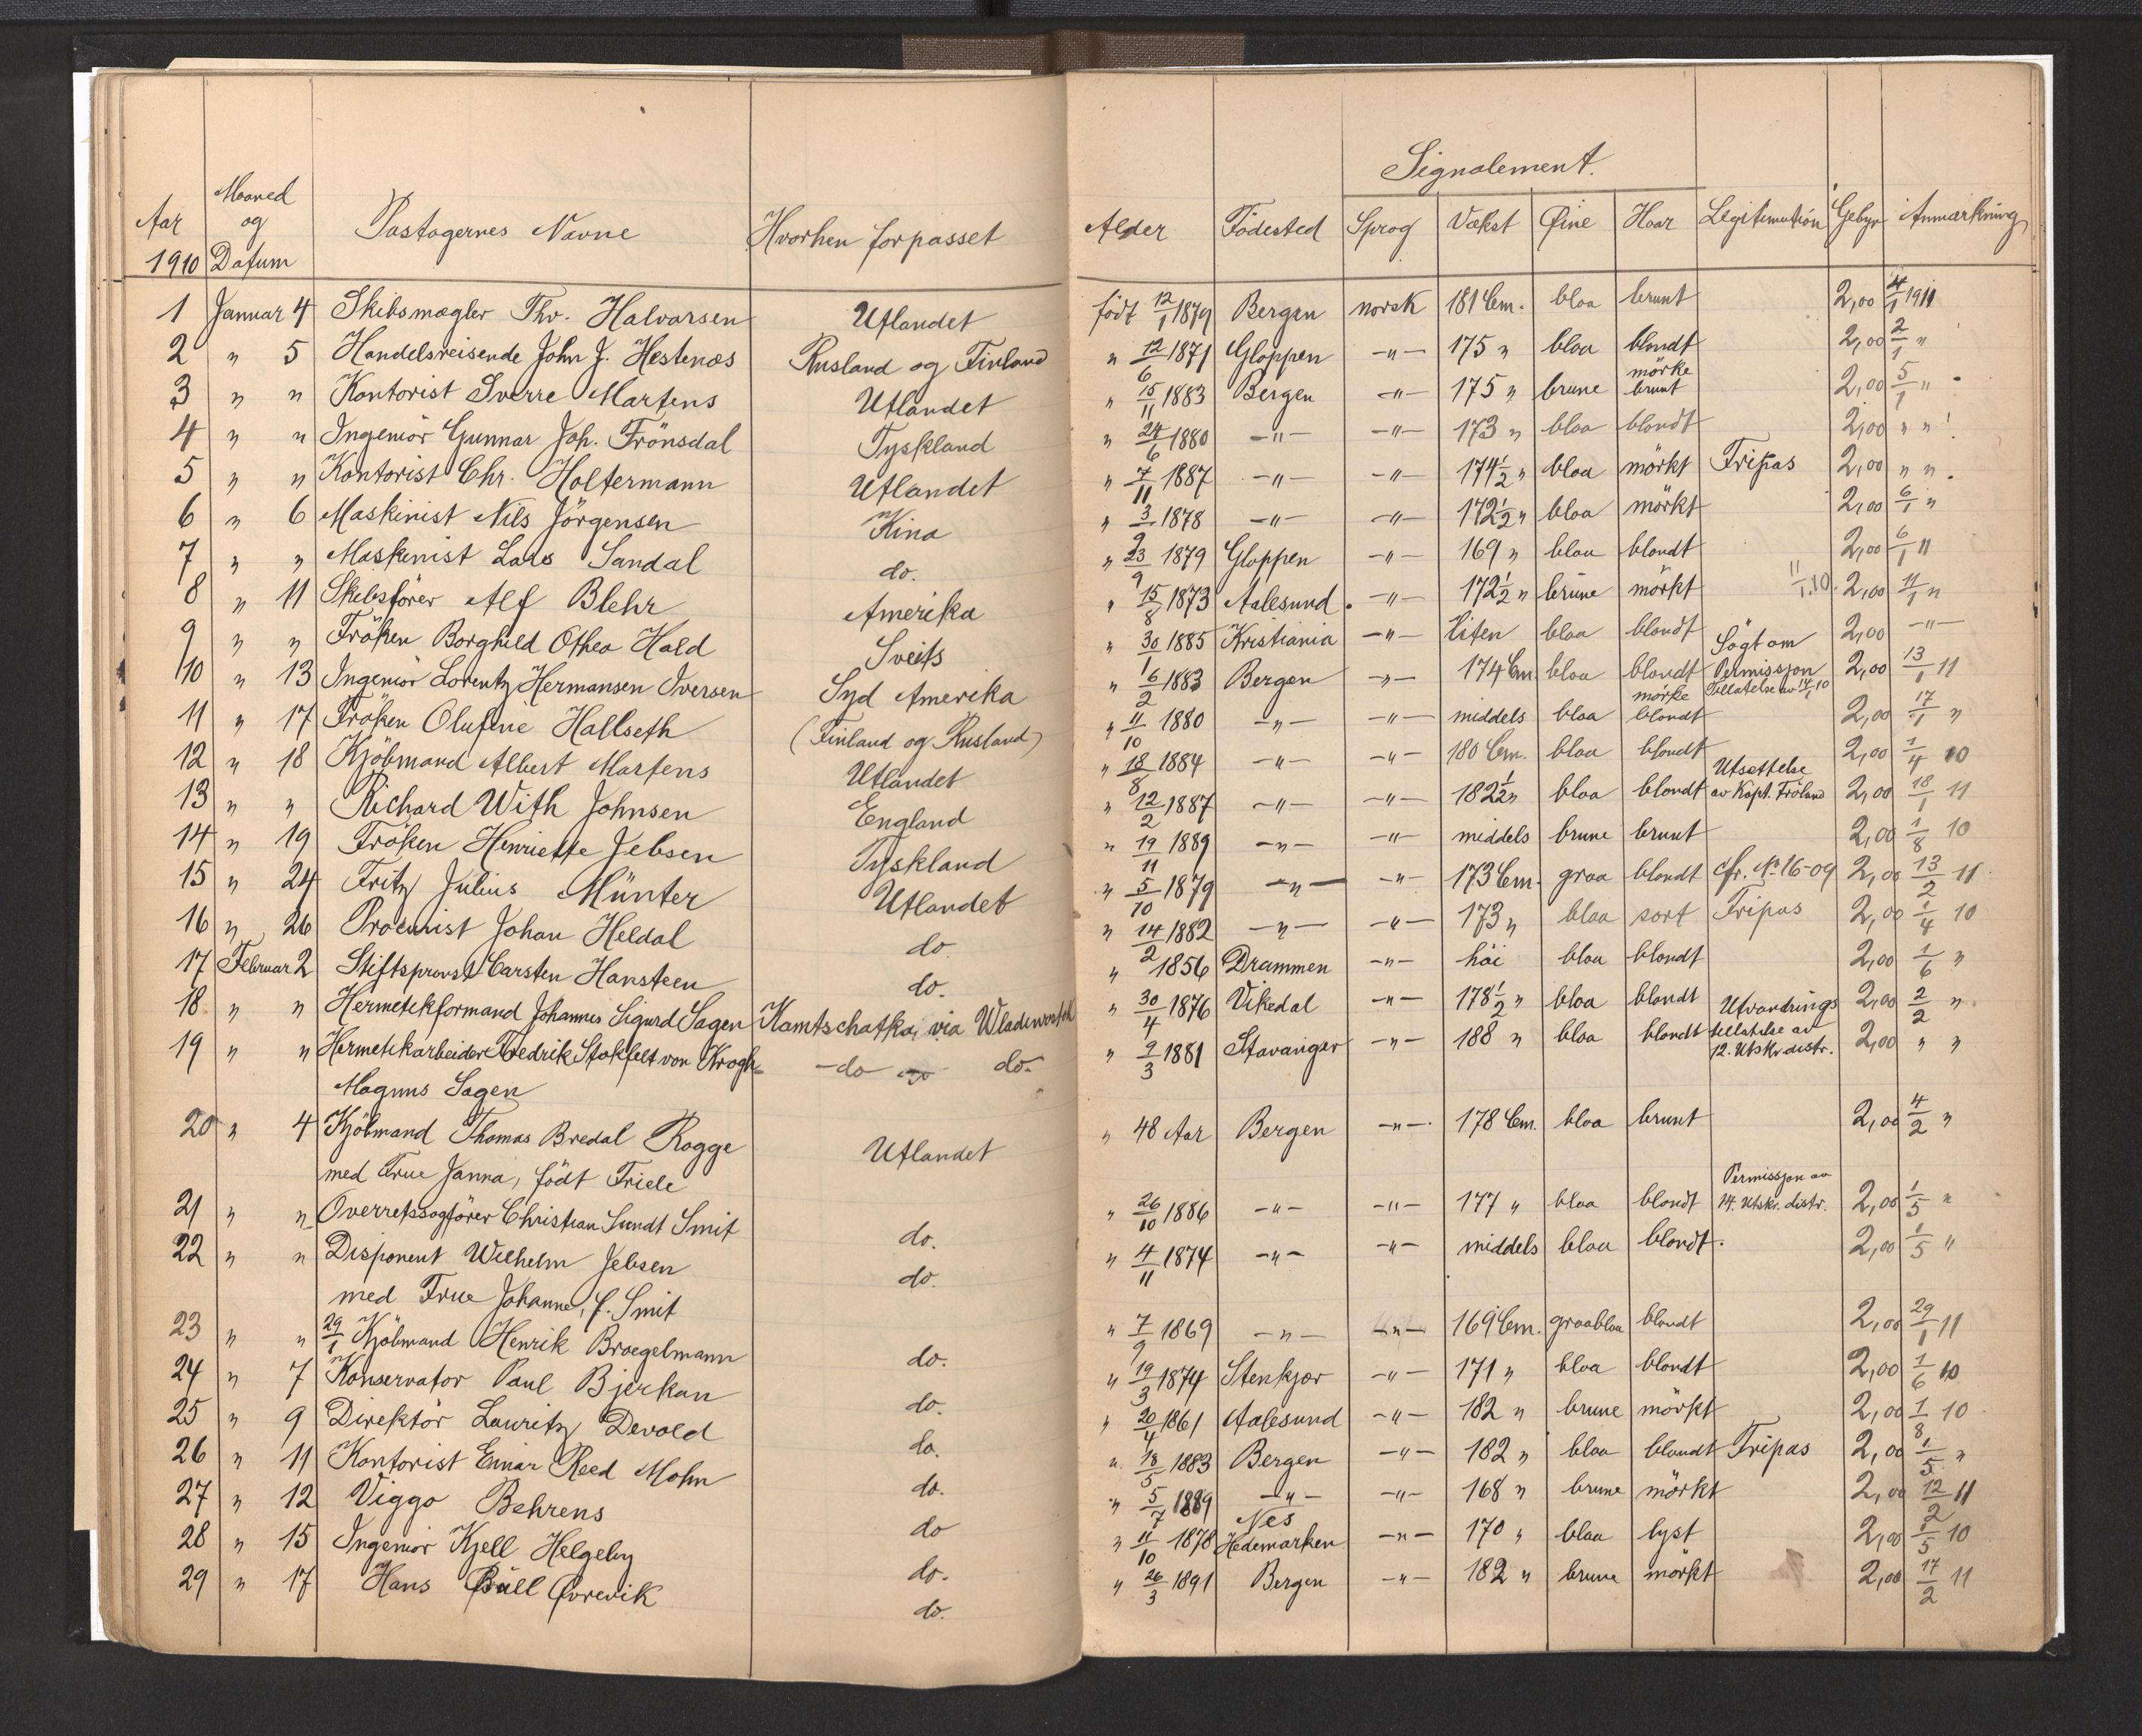 Signalement.
Aar 1910 Maaned og Datum Pastagernes Navne Hvorhen forpasset Alder Födested Sprog Vækst Øine Haar Legitimation Gebyr Anmærkning
1 Januar 4 Skibsmægler Thv. Halvorsen Utlandet født 12/1 1879 Bergen norsk 181 Cm. blaa brunt 2,00 4/1 1911
2 " 5 Handelsreisende John J. Hestenæs Rusland og Finland " 12/6 1871 Gloppen -"- 175 " blaa blondt 2,00 2/1 "
3 " " Kontorist Sverre Martens Utlandet " 15/11 1883 Bergen -"- 175 " brune mörke brunt 2,00 5/1 "
4 " " Ingeniör Gunnar Joh. Frönsdal Tyskland " 24/6 1880 -"- -"- 173 " blaa blondt 2,00 " "
5 " " Kontorist Chr. Holtermann Utlandet " 7/11 1887 -"- -"- 174 1/2 " blaa mörkt Fripas 2,00 " "
6 " 6 Maskinist Nils Jörgensen Kina " 3/9 1878 -"- -"- 172 1/2 " blaa mörkt 2,00 6/1 "
7 " " Maskinist Lars Sandal do. " 23/9 1879 Gloppen -"- 169 " blaa blondt 2,00 6/1 11
8 " 11 Skibsförer Alf Blehr Amerika " 15/8 1873 Aalesund. -"- 172 1/2 " brune mörkt 11/1.10. 2,00 11/1 "
9 " " Fröken Borghild Othea Hald Sveits " 30/1 1885 Kristiania -"- liten blaa blondt 2,00 -"-
10 " 13 Ingeniör Lorentz Hermansen Iversen Syd Amerika " 16/2 1883 Bergen -"- 174 Cm. blaa blondt Sögt om Permissjon Tillatelse av 14/1 10 2,00 13/1 11
11 " 17 Fröken Olufine Hallseth (Finland og Rusland) " 11/10 1880 -"- -"- middels blaa mörke blondt 2,00 17/1 "
12 " 18 Kjöbmand Albert Martens Utlandet " 18/8 1884 -"- -"- 180 Cm. blaa blondt 2,00 1/4 10
13 " " Richard With Johnsen England " 12/2 1887 -"- -"- 182 1/2 " blaa blondt Utsettelse av Kapt. Fröland 2,00 18/1 11
14 " 19 Fröken Henriette Jebsen Tyskland " 19/11 1889 -"- -"- middels brune brunt 2,00 1/8 10
15 " 24 Fritz Julius Münter Utlandet " 5/10 1879 -"- -"- 173 Cm. graa blondt cfr. No 16-09 2,00 13/2 11
16 " 26 Procurist Johan Heldal do " 14/2 1882 -"- -"- 173 " blaa sort Fripas 2,00 1/4 10
17 Februar 2 Stiftsprovst Carsten Hansteen do. " 1856 Drammen -"- höi blaa blondt 2,00 1/6 "
18 " " Hermetikformand Johannes Sigurd Sagen Kamtschatka, via Wladiwostok " 30/4 1876 Vikedal -"- 178 1/2 " blaa blondt Utvandrings 2,00 2/2 "
19 " " Hermetikarbeider Fredrik Stokfelt von Krogh -do- do. " 9/3 1881 Stavanger -"- 188 " blaa blondt tillatelse av 12. Utskr. distr. 2,00 " "
Magnus Sagen
20 " 4 Kjöbmand Thomas Bredal Rogge Utlandet " 48 Aar Bergen -"- 178 Cm. blaa brunt 2,00 4/2 "
med Frue Janna, födt Friele
21 " " Overretssagförer Christian Sundt Smit do. " 26/10 1886 -"- -"- 177 " blaa blondt Permissjon av 14. Utskr. distr. 2,00 1/5 "
22 " " Disponent Wilhelm Jebsen do. " 4/11 1874 -"- -"- middels blaa blondt. 2,00 1/5 "
med Frue Johanne, f. Smit
23 " " 29/1 Kjöbmand Henrik Broegelmann do. " 7/9 1869 -"- -"- 169 Cm. graablaa blondt 2,00 29/1 11
24 " 7 Konservator Paul Bjerkan do. " 19/3 1874 Stenkjær -"- 171 " blaa blondt 2,00 1/6 10
25 " 9 Direktör Lauritz Devold do. " 20/4 1861 Aalesund -"- 182 " brune mörkt 2,00 1/8 10
26 " 11 Kontorist Einar Reed Mohn do. " 18/5 1883 Bergen -"- 182 " blaa blondt Fripas 2,00 1/5 "
27 " 12 Viggo Behrens do " 5/7 1889 -"- -"- 168 " brune mörkt 2,00 12/2 11
28 " 15 Ingeniör Kjell Helgeby do. " 11/10 1878 Nes Hedemarken -"- 170 " blaa lyst 2,00 1/5 10
29 " 17 Hans Büll Øvrevik do. " 26/3 1891 Bergen -"- 182 " brune mörkt 2,00 17/2 11